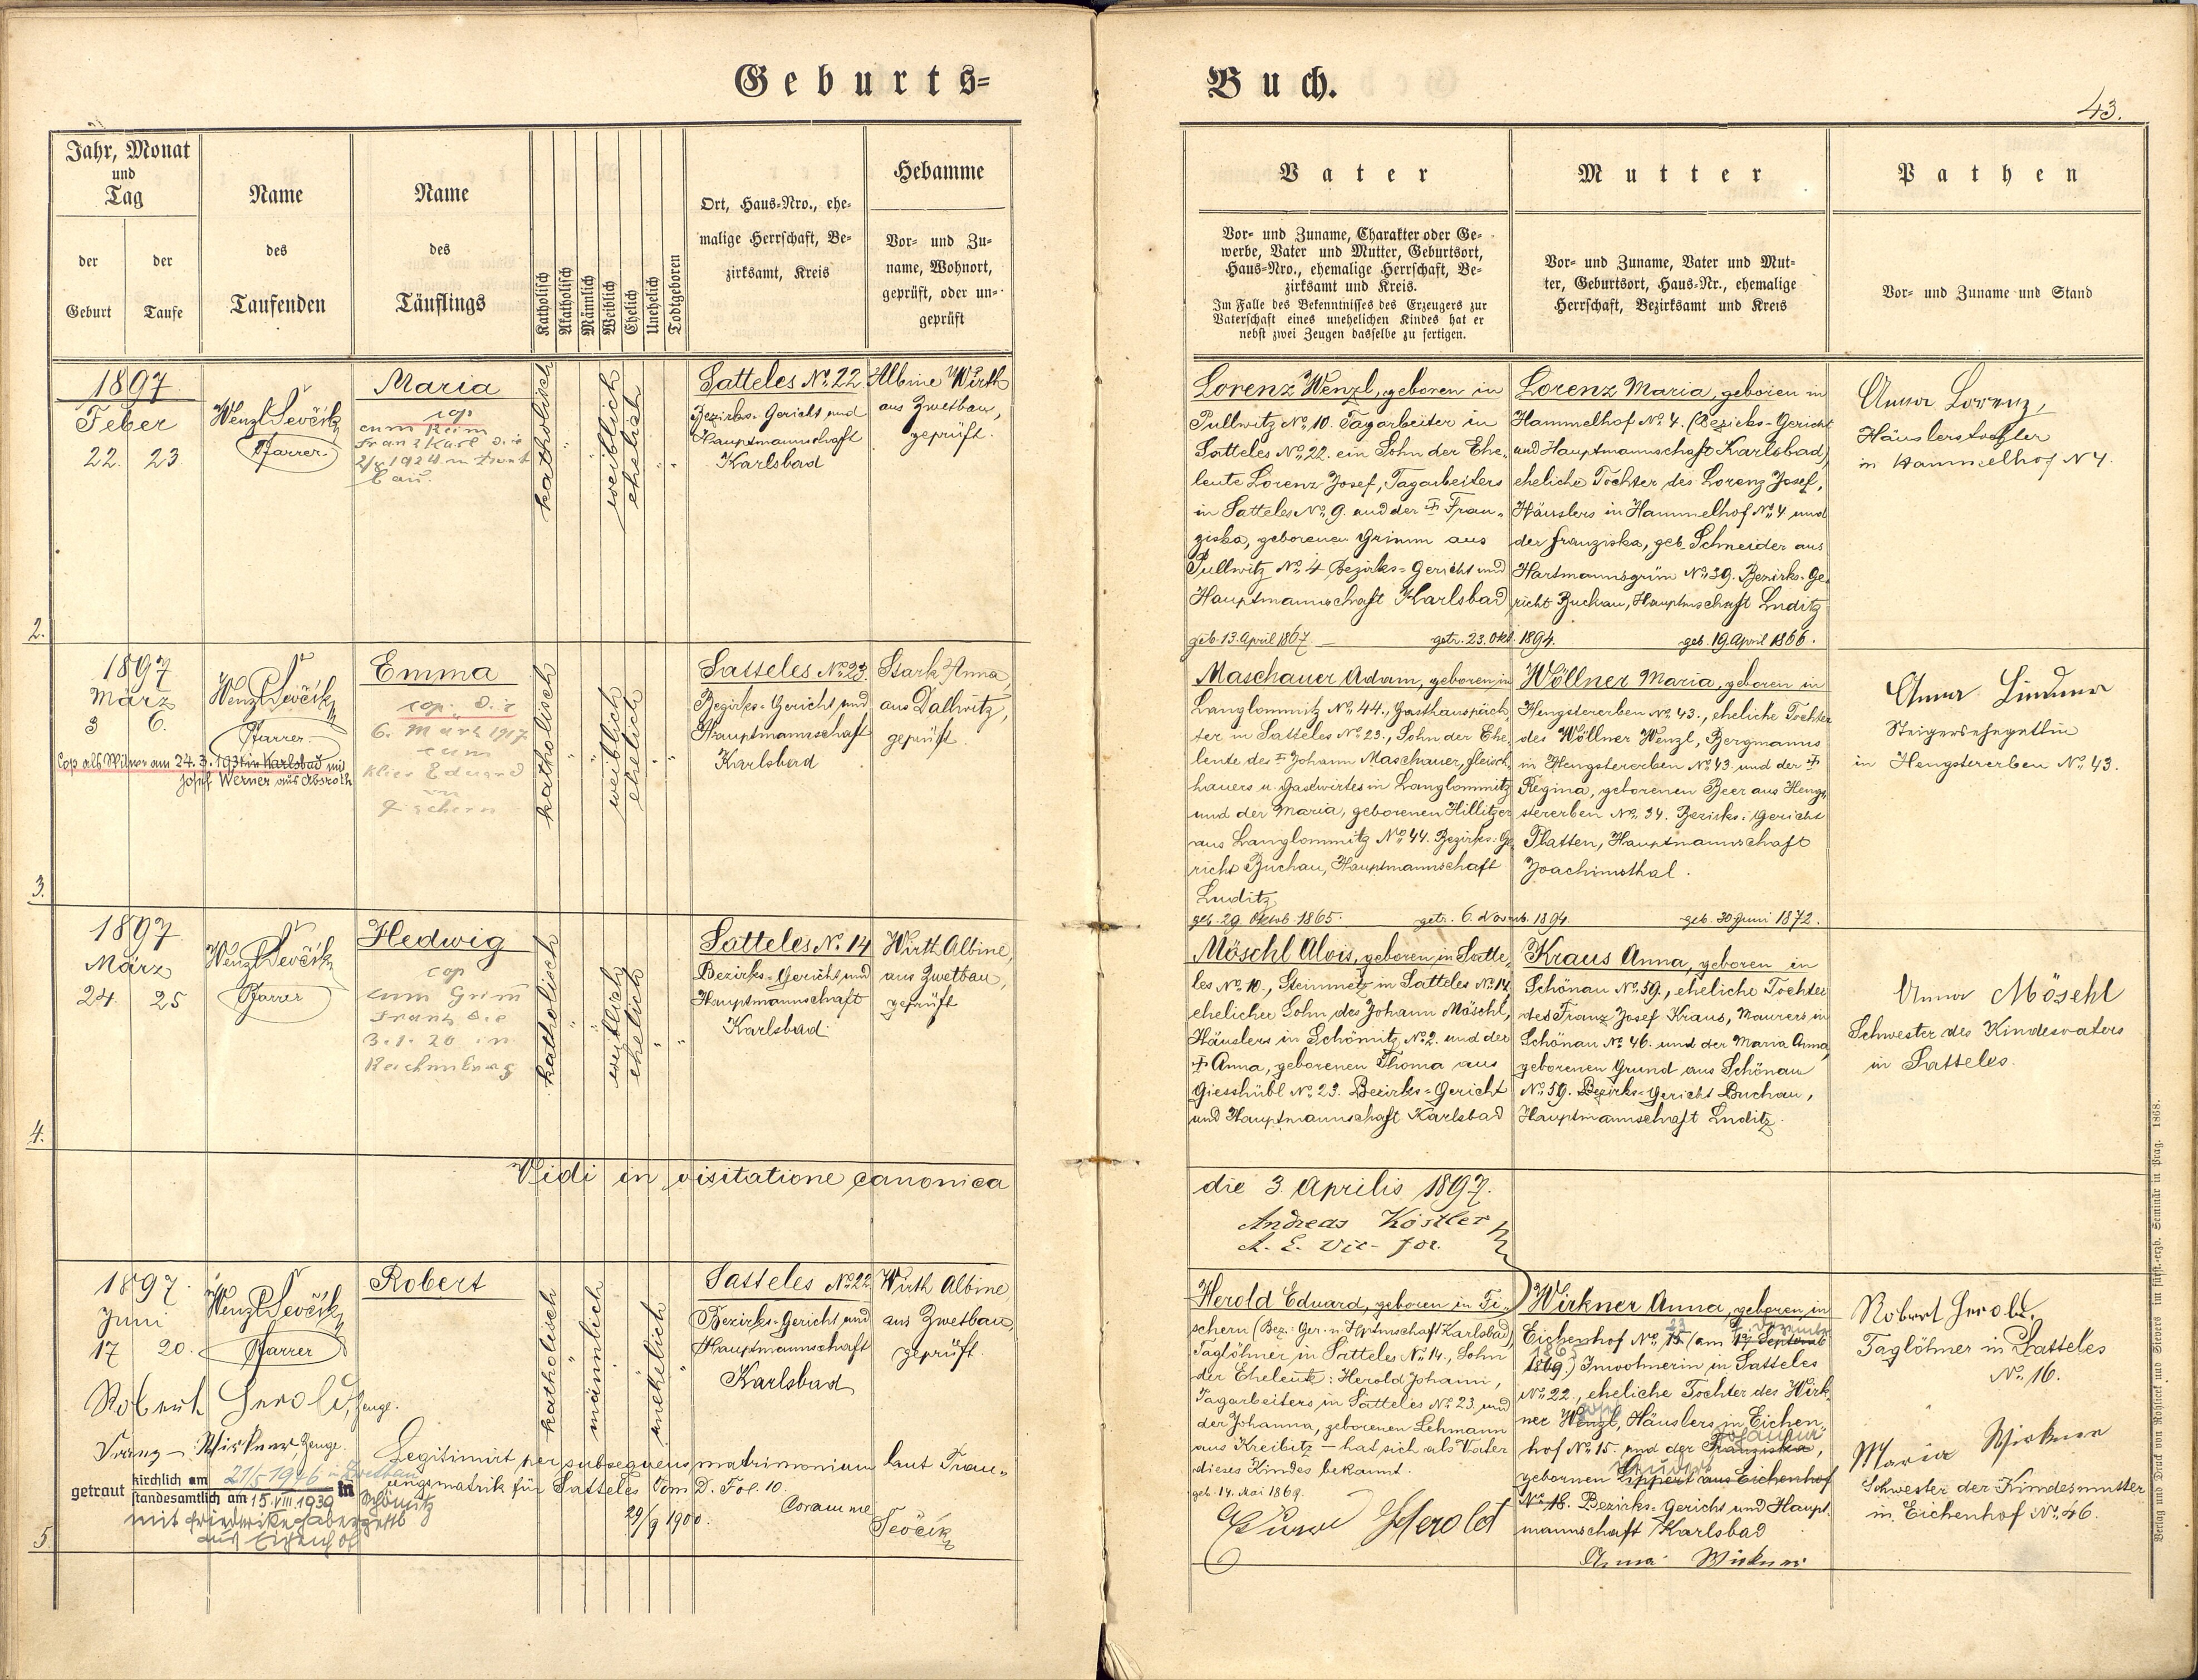 Geburts=
Buch.
43.
Jahr, Monat
und
Tag
der
Geburt
der
Taufe
Name
des
Taufenden
Name
des
Täuflings
Katholisch
Akatholisch
Männlich
Weiblich
Ehelich
Unehelich
Todtgeboren
Ort, Haus=Nro., ehe=
malige Herrschaft, Be=
zirksamt, Kreis
Hebamme
Vor= und Zu=
name, Wohnort,
geprüft, oder un=
geprüft
Vater
Vor= und Zuname, Charakter oder Ge=
werbe, Vater und Mutter, Geburtsort,
Haus=Nro., ehemalige Herrschaft, Be=
zirksamt und Kreis.
Im Falle des Bekenntnisses des Erzeugers zur
Vaterschaft eines unehelichen Kindes hat er
nebst zwei Zeugen dasselbe zu fertigen.
Mutter
Vor= und Zuname, Vater und Mut=
ter, Geburtsort, Haus=Nr., ehemalige
Herrschaft, Bezirksamt und Kreis
Pathen
Vor= und Zuname und Stand
2.
1897
Feber
22. 23
Wenzl Sevčik
Pfarrer
Maria
cop.
cum Reim
Franz Karl die
2/8 1924 in Zwet
bau.
katholisch
weiblich
ehelich
Satteles No. 22
Bezirks=Gericht und
Hauptmannschaft
Karlsbad
Albine Wirth
aus Zwetbau,
geprüft.
Lorenz Wenzl, geboren in
Pullwitz No. 10. Tagarbeiter in
Satteles No. 22. ein Sohn der Ehe=
leute Lorenz Josef, Tagarbeiters
in Satteles No. 9. und der † Fran=
ziska, geborenen Grimm aus
Pullwitz No. 4 Bezirks=Gericht und
Hauptmannschaft Karlsbad
geb. 13. April 1867. getr. 23. Okt. 1894. geb. 19 April 1866.
Lorenz Maria, geboren in
Hammelhof No. 4. (Bezirks=Gericht
und Hauptmannschaft Karlsbad),
eheliche Tochter des Lorenz Josef,
Häuslers in Hammelhof No. 4 und
der Franziska, geb. Schneider aus
Hartmannsgrün No. 39. Bezirks=Ge=
richt Buchau, Hauptmschaft Luditz
Anna Lorenz,
Häuslerstochter
in Hammelhof N 4.
3.
1897
März
3 6.
Wenzl Sevčik
Pfarrer
Cop. als Witwe am 24.3.1931 in Karlsbad mit
Josef Werner aus Absroth
Emma
cop. die
6. März 1917
cum
Klier Eduard
in
Fischern
katholisch
weiblich
ehelich
Satteles No. 23.
Bezirks=Gericht und
Hauptmannschaft
Karlsbad
Stark Anna,
aus Dallwitz,
geprüft.
Maschauer Adam, geboren in
Langlommitz No. 44., Gasthauspäch=
ter in Satteles No. 23., Sohn der Ehe=
leute des † Johann Maschauer, Fleisch=
hauers u. Gastwirtes in Langlommitz
und der Maria, geborenen Hillitzer
aus Langlommitz No. 44. Bezirks=Ge=
richt Buchau, Hauptmannschaft
Luditz
geb. 29 Oktob. 1865. getr. 6. Novemb. 1894. geb. 30 Juni 1872.
Wöllner Maria, geboren in
Hengstererben No. 43., eheliche Tochter
des Wöllner Wenzl, Bergmanns
in Hengstererben No. 43 und der †
Regina, geborenen Beer aus Heng=
stererben No. 34. Bezirks=Gericht
Platten, Hauptmannschaft
Joachimsthal.
Anna Lindner
Steigersehegattin
in Hengstererben No. 43.
4.
1897
März
24. 25
Wenzl Sevčik
Pfarrer
Hedwig
cop
cum Grim
Franz die
3.1.20 in
Reichenberg
katholisch
weiblich
ehelich
Satteles No. 14
Bezirks=Gericht und
Hauptmannschaft
Karlsbad.
Wirth Albine,
aus Zwetbau,
geprüft
Möschl Alois, geboren in Satte=
les No. 10., Steinmetz in Satteles No. 14
ehelicher Sohn des Johann Möschl,
Häuslers in Schömitz No. 2. und der
† Anna, geborenen Thoma aus
Giesshübl No. 23. Bezirks=Gericht
und Hauptmannschaft Karlsbad
Kraus Anna, geboren in
Schönau No. 59., eheliche Tochter
des Franz Josef Kraus, Maurers in
Schönau No. 46. und der Maria Anna,
geborenen Grund aus Schönau
No. 59. Bezirks=Gericht Buchau,
Hauptmannschaft Luditz.
Anna Möschl
Schwester des Kindesvaters
in Satteles.
Vidi in visitatione canonica
die 3. Aprilis 1897.
Andreas Köstler
A. E. Vic. for.
5
1897.
Juni
17 20.
Wenzl Sevčik
Pfarrer
Robert
katholisch
männlich
unehelich
Satteles No. 22
Bezirks=Gericht und
Hauptmannschaft
Karlsbad
Wirth Albine
aus Zwetbau,
geprüft.
Robert Herold, Zeuge.
Franz Wirkner, Zeuge.
Legitimirt per subsequens matrimonium laut Trau=
ungsmatrik für Satteles Tom D. Fol. 10.
29/9 1900. Coram me
Sevčik
getraut
kirchlich am 21/5 1946 in Zwetbau
standesamtlich am 15.VIII.1939 in Schömitz
mit Friederike
aus Eichenhof
Herold Eduard, geboren in Fi=
schern (Bez: Ger. u. Hptmschaft Karlsbad),
Taglöhner in Satteles No. 14., Sohn
der Eheleute: Herold Johann,
Tagarbeiters in Satteles No. 23. und
der Johanna, geborenen Lehmann
aus Kreibitz — hat sich als Vater
dieses Kindes bekannt.
geb. 14. Mai 1869.
Herold
Wirkner Anna, geboren in
Eichenhof No. 15 (am 17 Septemb.
1869.) Inwohnerin in Satteles
No. 22., eheliche Tochter des Wirk=
ner Wenzl, Häuslers in Eichen=
hof No. 15. und der Franziska,
gebornen Lippert aus Eichenhof
No. 18. Bezirks=Gericht und Haupt=
mannschaft Karlsbad
Anna Wirkner
Robert Herold,
Taglöhner in Satteles
No. 16.
Maria Wirkner
Schwester der Kindesmutter
in Eichenhof No. 46.
Verlag und Druck von Rohlicek und Sievers im fürst.=erzb. Seminär in Prag. 1868.